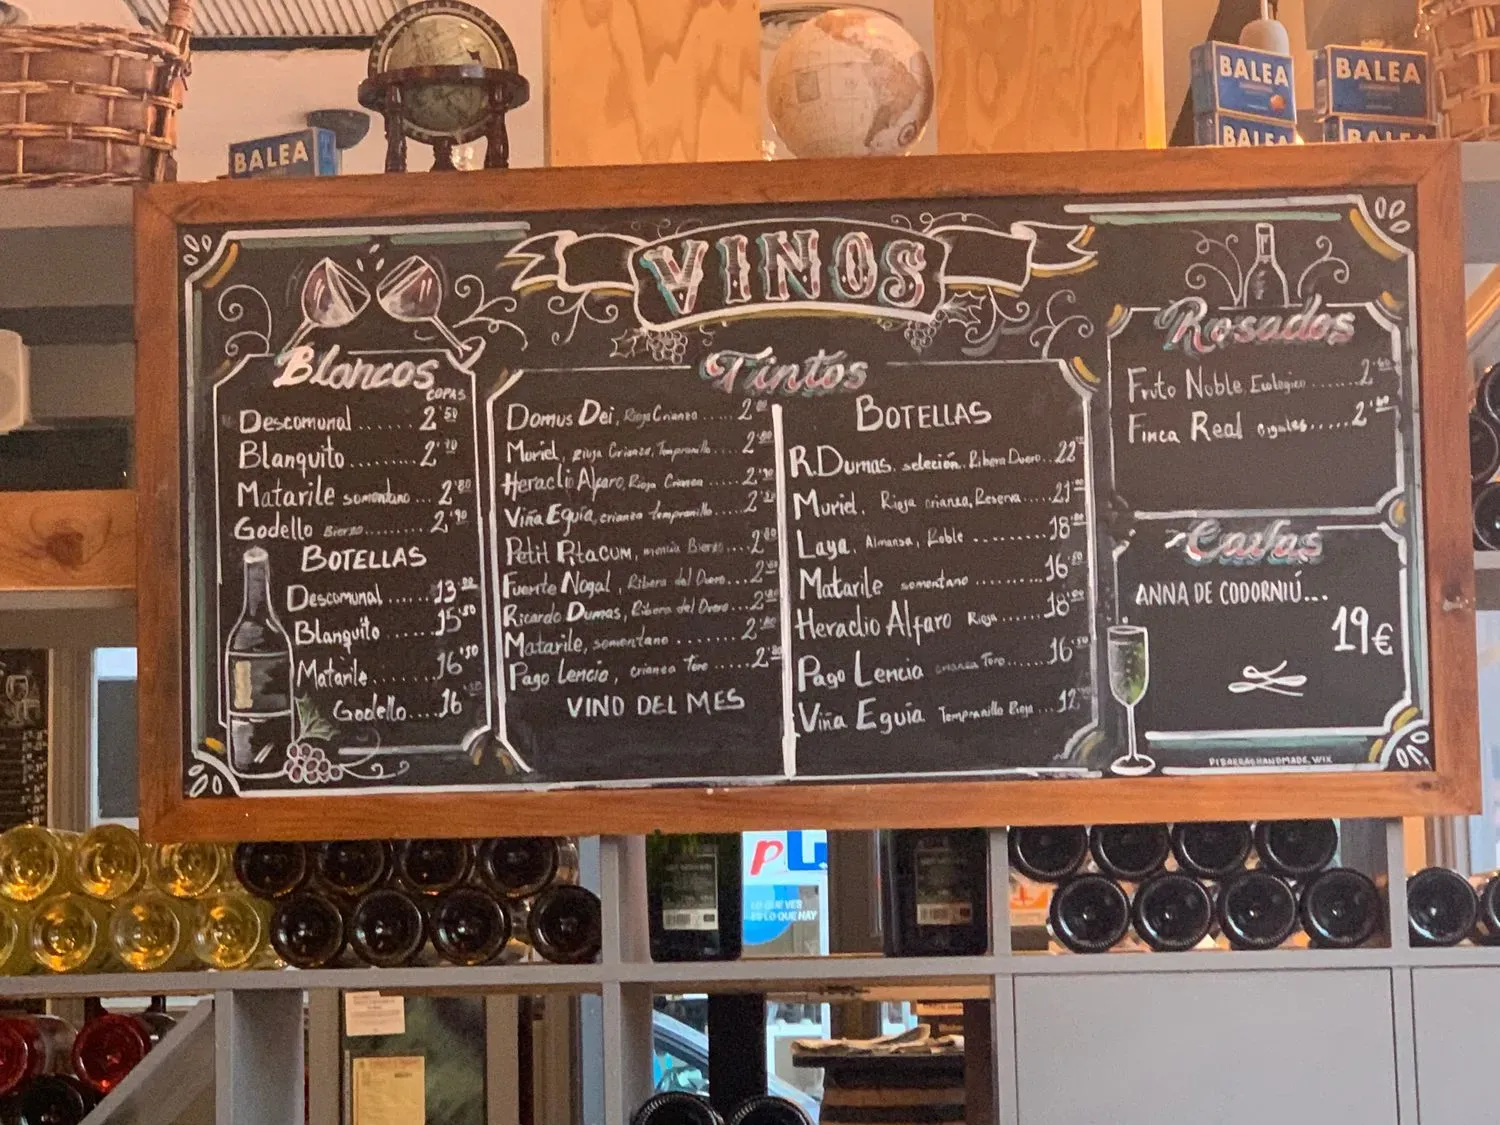 BALEA
BALEA
BALEA
BALEA
VINOS
Blancos
COPAS
Descomunal ...... 2'50
Blanquito ......... 2'70
Matarile somontano ... 2'80
Godello Bierzo ........ 2'90
BOTELLAS
Descomunal ...... 13'00
Blanquito ...... 15'50
Matarile ........ 16'50
Godello .... 16
Tintos
Domus Dei, Rioja Crianza ..... 2
Muriel, Rioja Crianza, Tempranillo ... 2'80
Heraclio Alfaro, Rioja Crianza ... 2'90
Viña Eguia, crianza tempranillo ... 2
Petit Pitacum, mencia Bierzo ... 2'80
Fuerte Nogal, Ribera del Duero ... 2
Ricardo Dumas, Ribera del Duero ... 2
Matarile, somontano ....... 2
Pago Lencia, crianza Toro ..... 2'80
VINO DEL MES
BOTELLAS
R.Dumas. selección. Ribera Duero .. 22
Muriel. Rioja crianza, Reserva .... 21
Laya. Almansa, Roble ......... 18
Matarile somontano ......... 16'50
Heraclio Alfaro Rioja ... 18
Pago Lencia crianza Toro ...... 16'50
Viña Eguia Tempranillo Rioja ... 12
Rosados
Fruto Noble Ecologico ....... 2'
Finca Real cigales ..... 2'
Cavas
ANNA DE CODORNIÚ...
19€
PIZARRASHANDMADE.WIX
LO QUE VES
ES LO QUE HAY